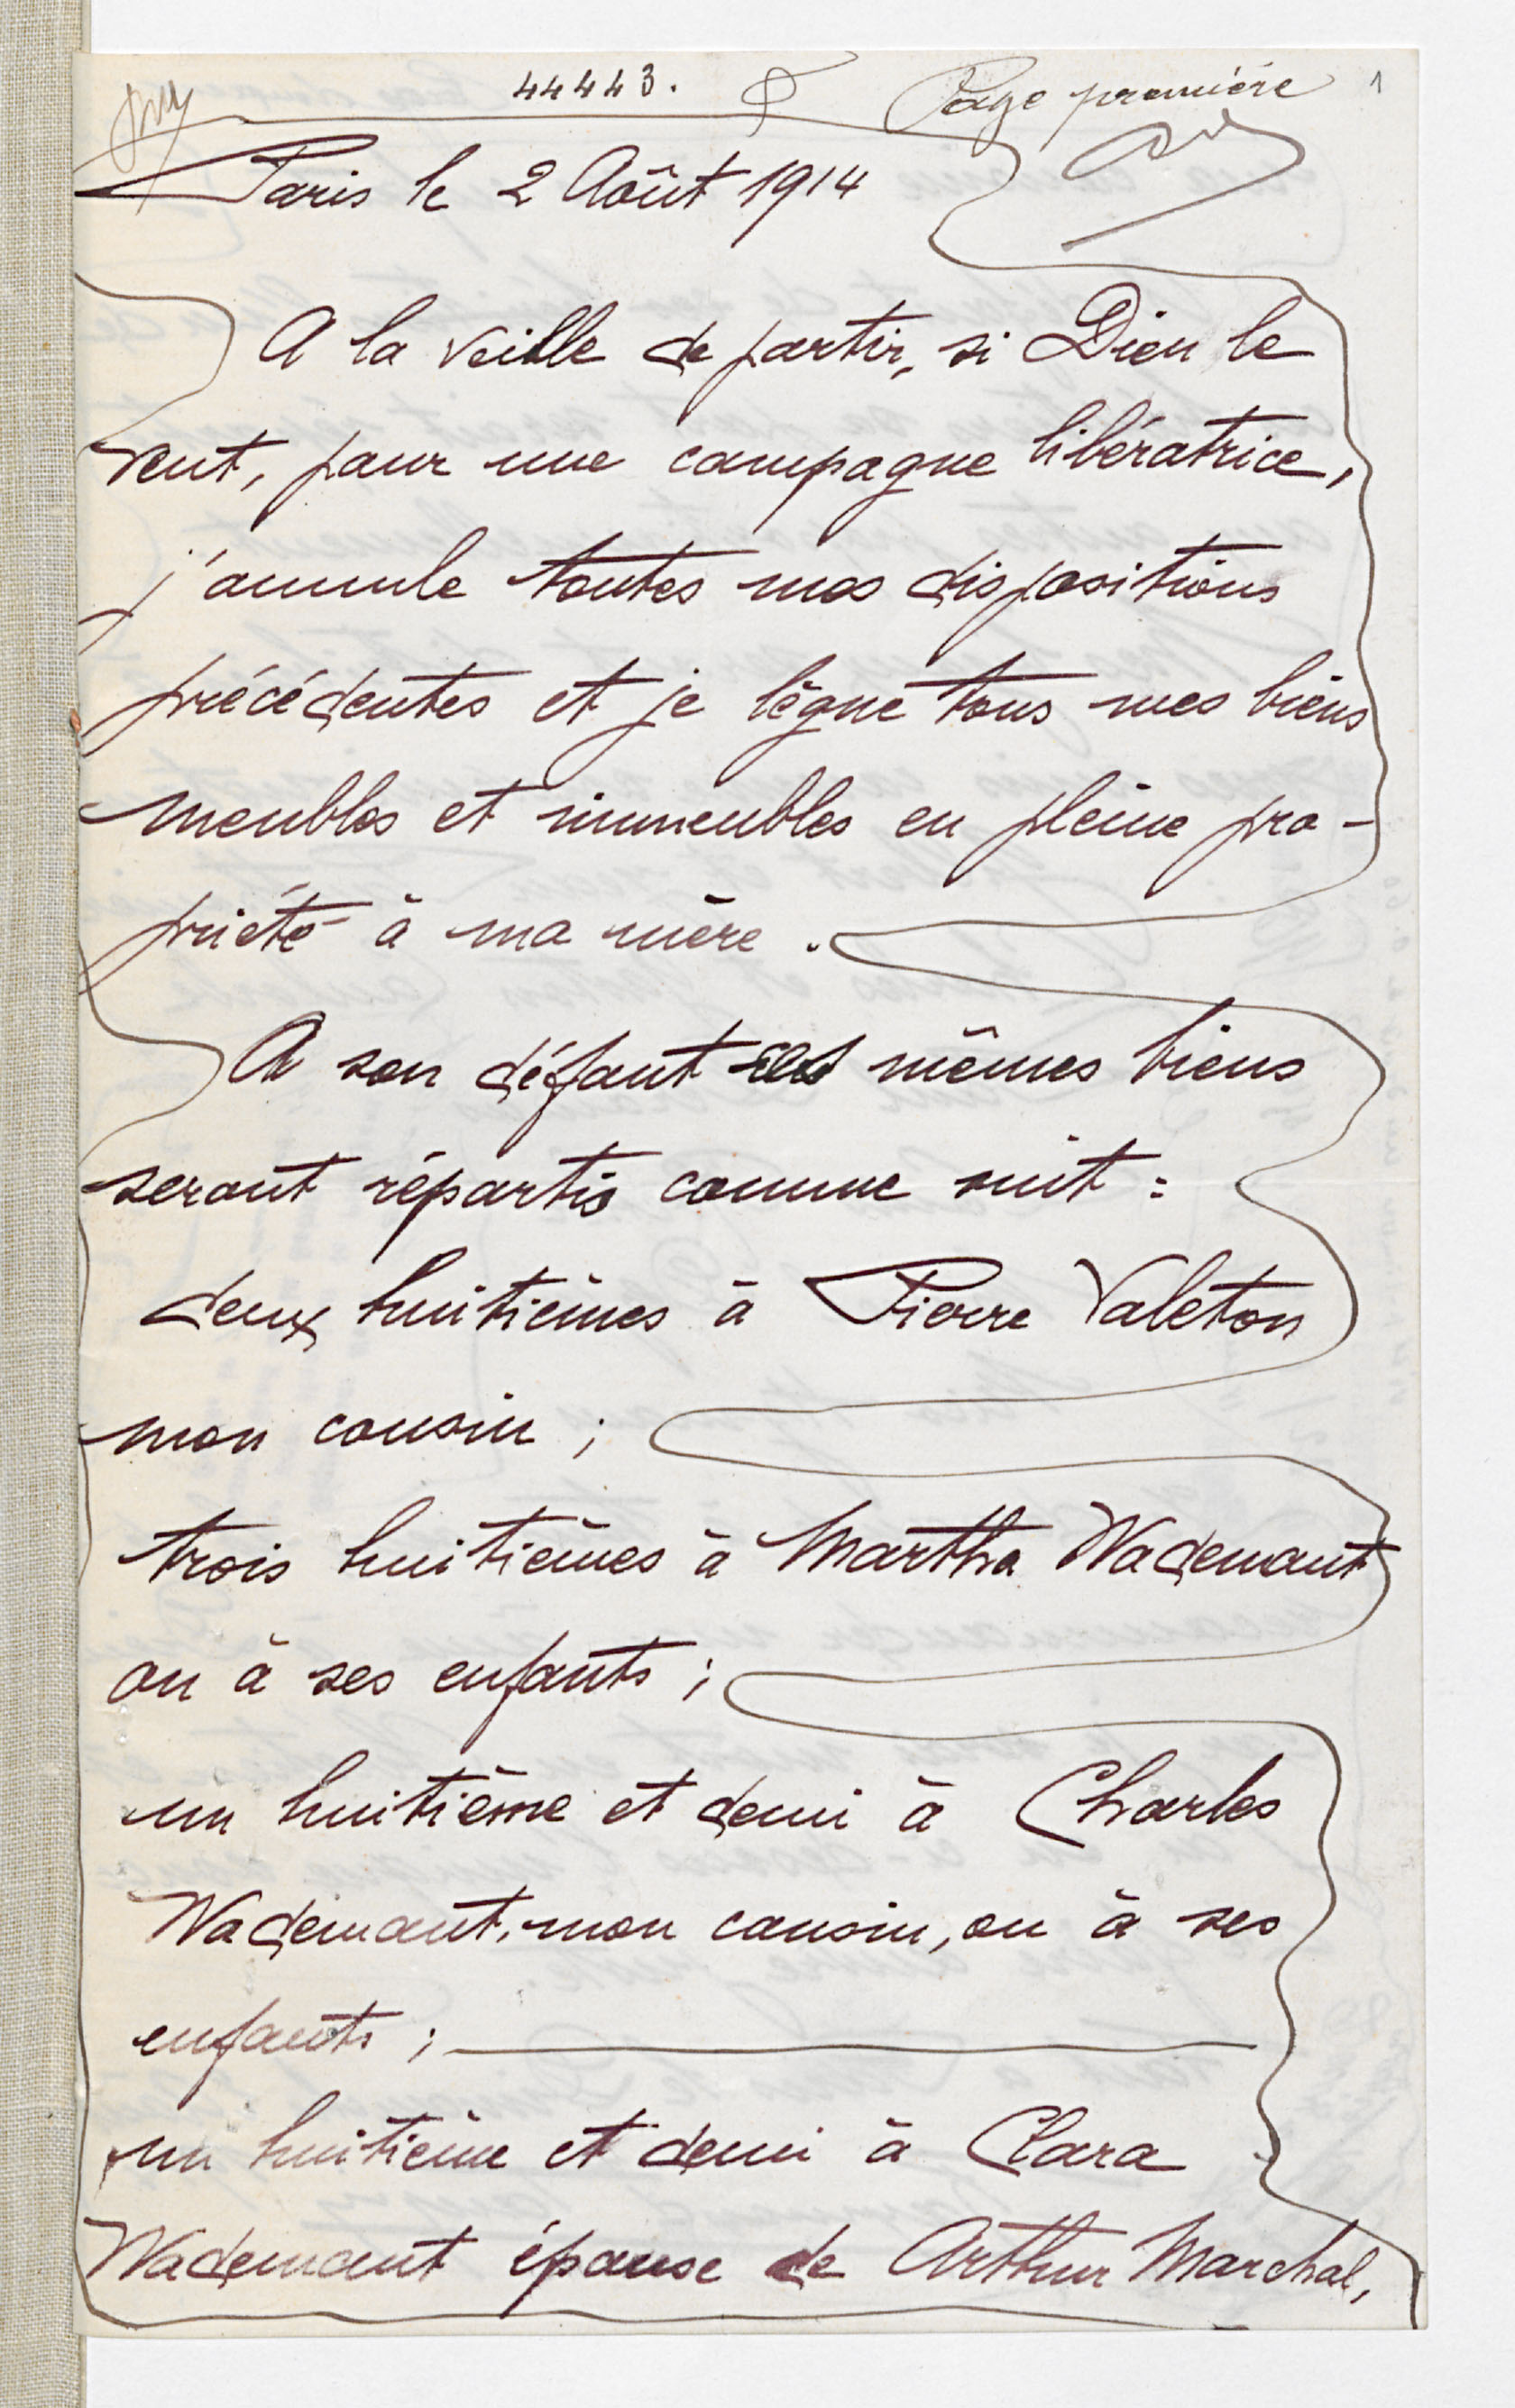 44443. Page première 1
Paris le 2 Août 1914
A la veille de partir, si Dieu le
veut, pour une campagne libératrice,
j'annule toutes mes dispositions
précédentes et je lègue tous mes biens
meubles et immeubles en pleine pro-
priété à ma mère.
A son défaut ces mêmes biens
seront répartis comme suit :
deux huitièmes à Pierre Valeton
mon cousin ;
trois huitièmes à Martha Wademant
ou à ses enfants ;
un huitième et demi à Charles
Wademant, mon cousin, ou à ses
enfants ;
un huitième et demi à Clara
Wademant épouse de Arthur Marchal,